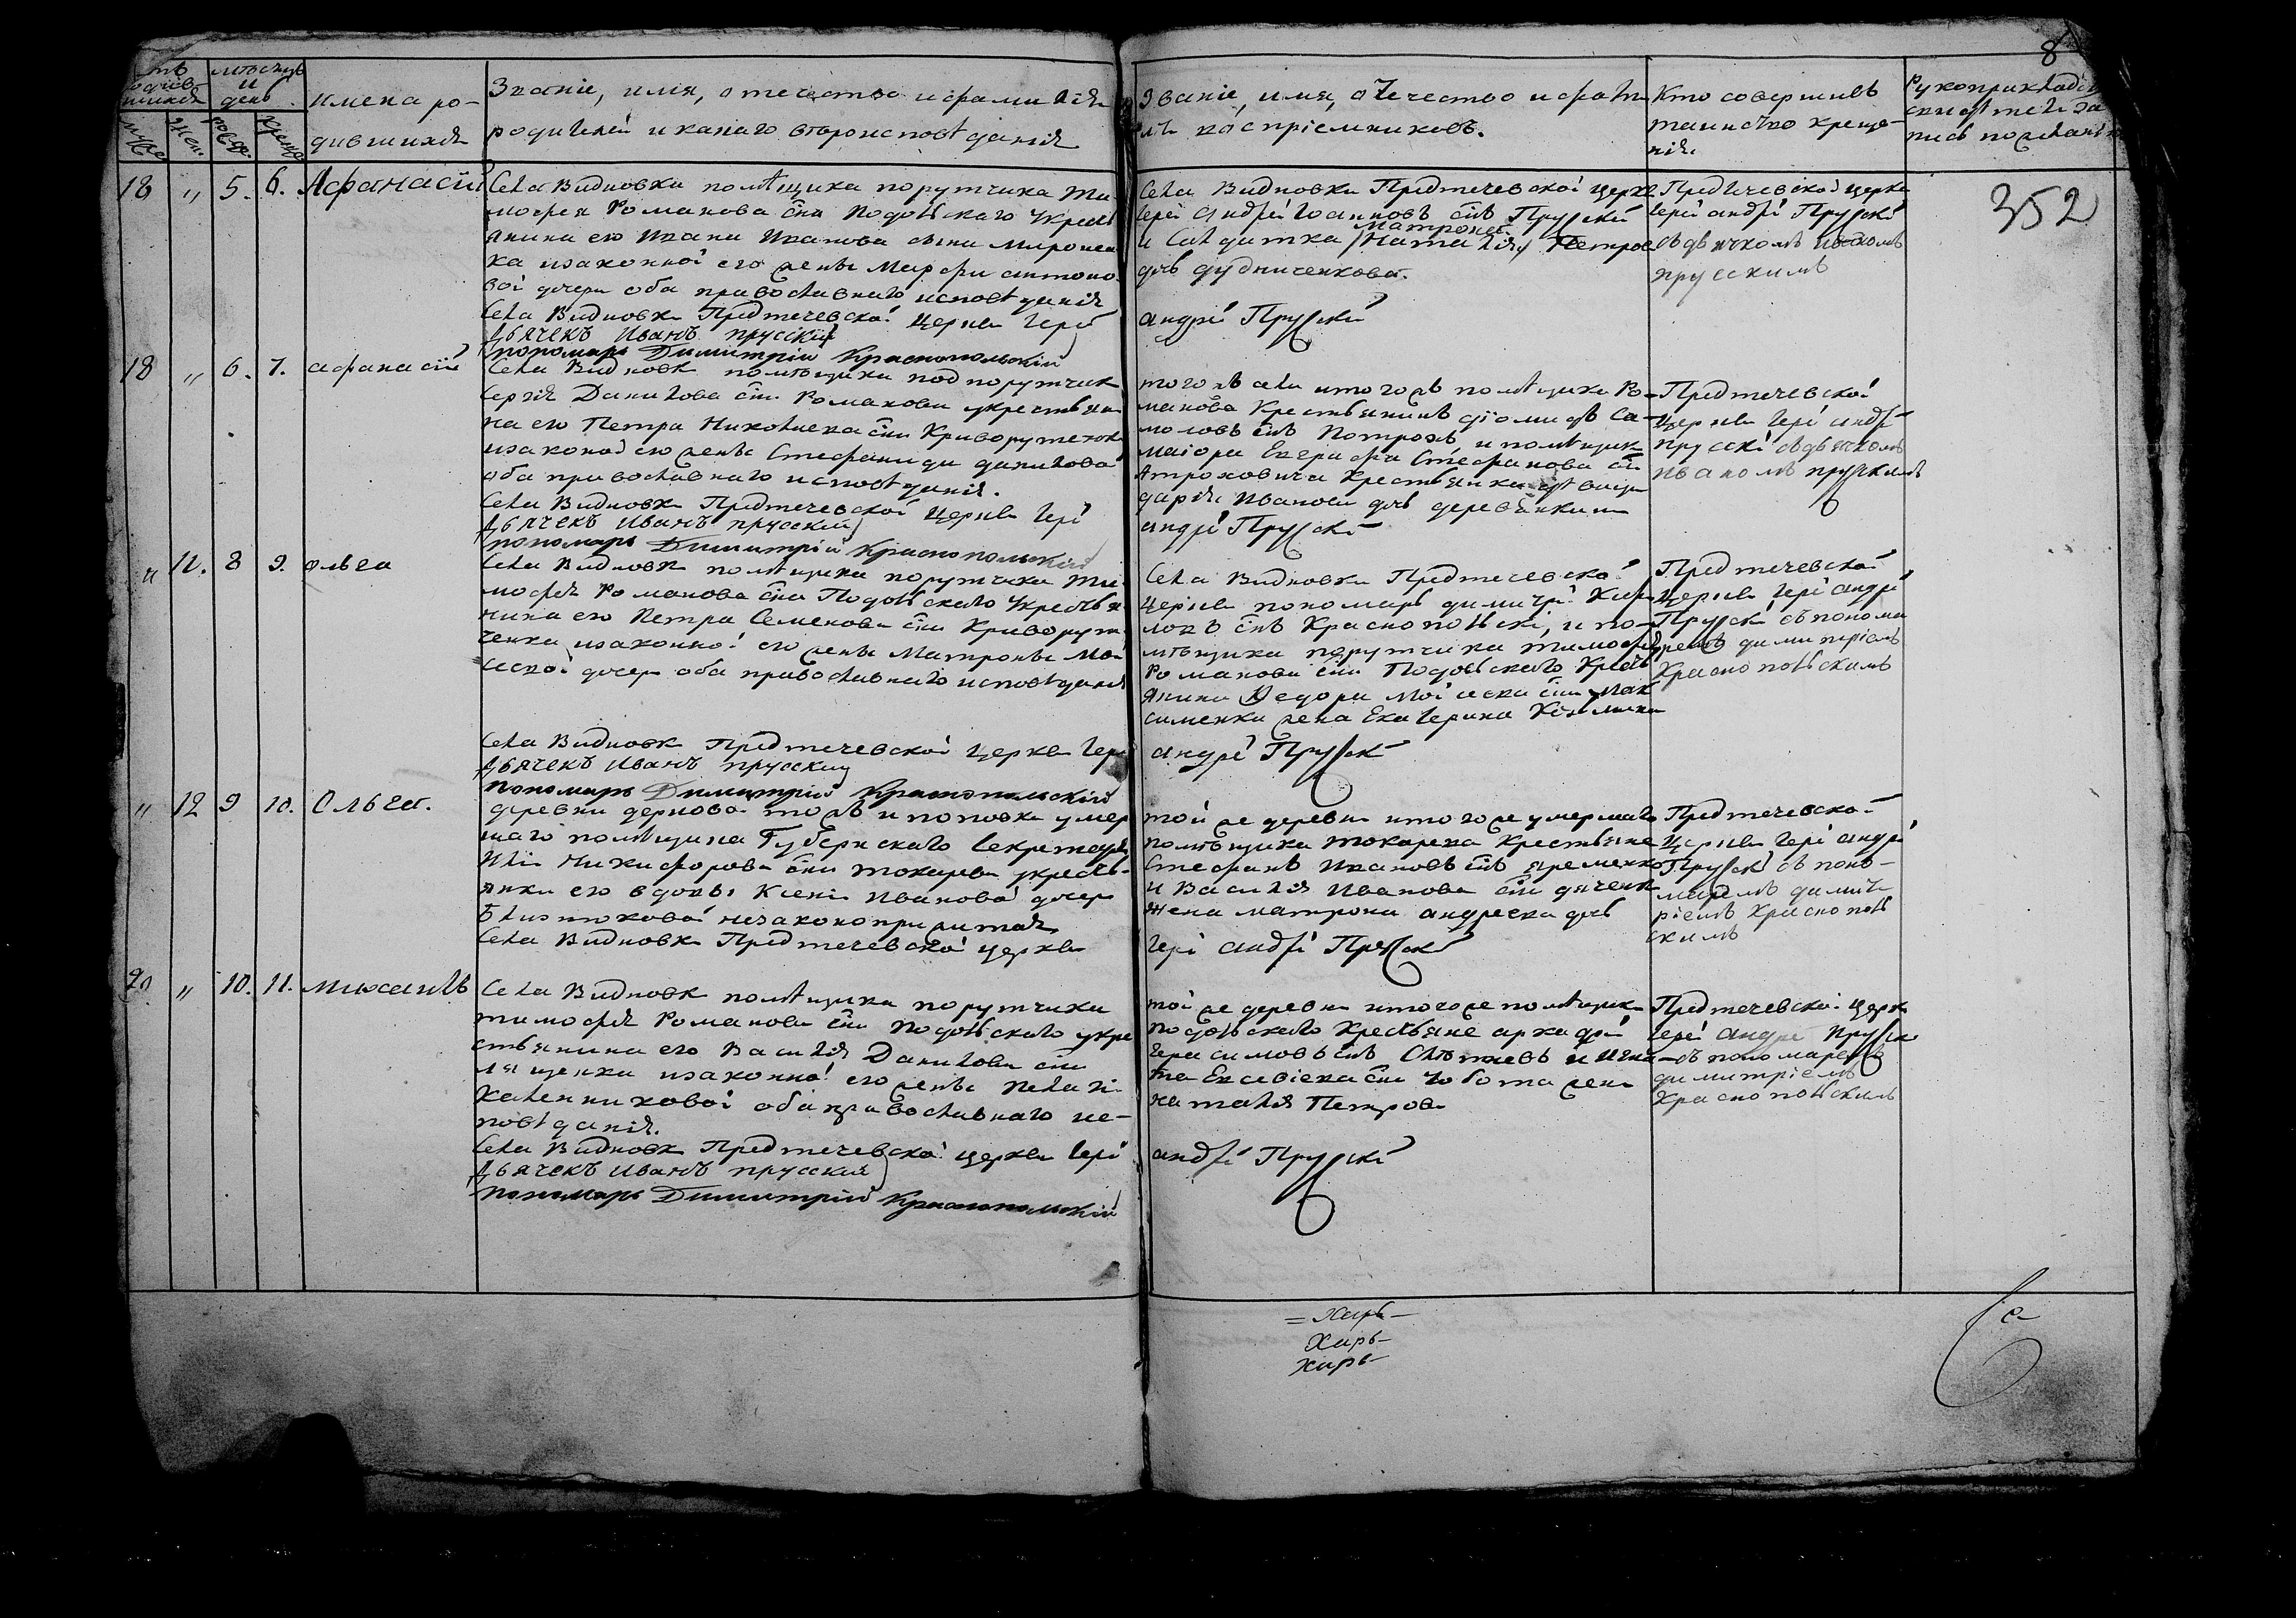 8
мѣсяцъ
и
день
имена ро-
дившихся
Званіе, имя, отечество и фамилія
родителей и какаго вѣроисповѣданія
Званіе, имя, отечество и фами-
воспріемниковъ.
Кто совершилъ
таинство креще-
нія.
18 " 5. 6. Афанасій
Села Видновки помѣщика порутчика Ти-
мофея Романова сна Подольскаго укрест
янина его Ивана Иванова сына Миронен
ка изаконной его жены Марфы антоно-
вой дочери оба православнаго исповѣданія
Села Видновки Предтечевской церкви Іерей
Дьячекъ Иванъ прусскій
пономарь Димитрій Краснопольскій
Села Видновки Предтечевской церкв
Іерей андрей Іоанновъ снъ Прусскій
и Салдатка Матрона Наталія Петров
дчь дудниченкова.
андрей Прусскій
Предтечевской церкв
Іерей андрей Прусскій
съдьячкомъ Иваномъ
прусскимъ
352
18 " 6. 7. афанасій
Села Видновк помѣщика подпорутчик
Сергія Данилова сна Романова укрестьяни
на его Петра Николаева сна Криворутенка
изаконой его жены Стефаниды данилова
оба православнаго исповѣданія.
Села Видновк Предтечевской церкви Іерей
Дьячекъ Иванъ прусскій
пономарь Димитрій Краснопольскій
тогожъ села итогожъ помѣщика Ро-
манова Крестьянинъ діомидъ Са-
моловъ снъ и помѣщик
маіора Евграфа Стефанова сна
Крестьянка
дарія Иванова дчь
андрей Прусскій
Предтечевской
церкви Іерей андрей
прусскій съдьячкомъ
иваномъ прусскимъ
" 12. 8 9. ольга
Села Видновк помѣщика порутчика Ти-
мофея Романова сна Подольскаго укрестья
нина его Петра Семенова сна Криворут-
ченка изаконной его жены Матроны Мои
сеевой дочери оба православнаго исповѣданія
Села Видновк Предтечевской церкви Іерей
Дьячекъ Иванъ прусскій
пономарь Димитрій Краснопольскій
Села Видновки Предтечевской
церкви пономарь димитрій Кири-
ловъ снъ Краснопольскій, и по-
мѣщика порутчика тимофея
Романова сна Подольскаго Крест
янина Федора Моісеева сна Мак
сименка жена Екатерина
андрей Прусскій
Предтечевской
церкви Іерей андрей
Прусскій съпонома
ремъ димитріемъ
Краснопольскимъ
" 12 9 10. Ольга.
деревни дернова тожъ и поповки умер
шаго помѣщика Губернскаго Секретаря
Иліи Никифорова сна токарева укрест-
янки его вдовы Ксеніи Ивановой дочер
незаконоприжитая
Села Видновк Предтечевской церкви
той же деревни итогоже умершаго
помѣщика токарева Крестьяне
Стефанъ Ивановъ снъ яременко
и Василія Иванова сна дяченк
жена матрона андреева дчь
Іерей андрей Прусскій
Предтечевской
церкви Іерей андрей
Прусскій съ поно-
маремъ димит
ріемъ Краснополь
скимъ
20 " 10. 11. михаилъ
Села Видновк помѣщика порутчика
тимофея Романова сна подольскаго укре
стьянина его Василія Данилова сна
лященка изаконной его жены Пелагіи
Калениковой оба православнаго ис-
повѣданія.
Села Видновк Предтечевской церкви Іерей
Дьячекъ Иванъ прусскій
пономарь Димитрій Краснопольскій
той же деревни итогоже помѣщик
подольскаго Крестьяне аркадій
Герасимовъ снъ и Игна
та Евсевіева сна Чобота жена
наталія Петрова
андрей Прусскій
Предтечевской церкв
Іерей андрей Прусскій
съ пономаремъ
димитріемъ
Краснопольскимъ
= Харь-
Харь-
харь-